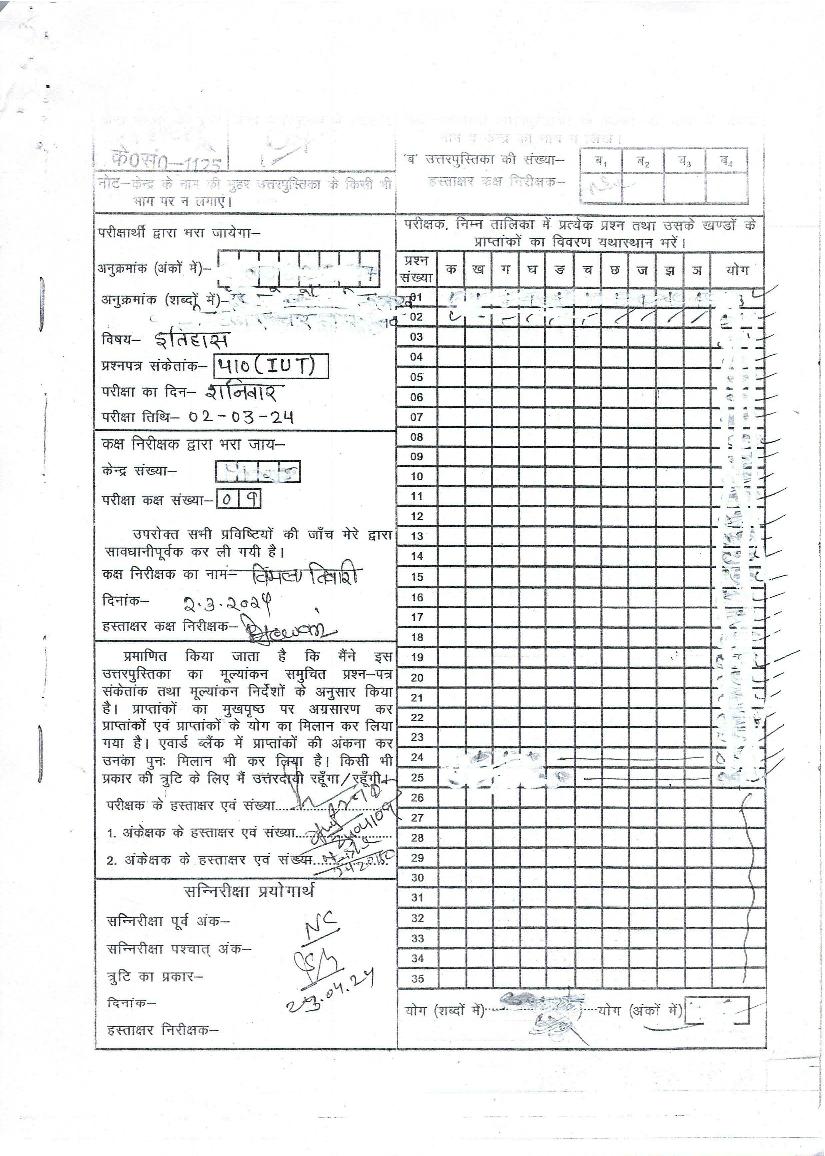 के0सं0-1125
नोट-केन्द्र के नाम की मुहर उत्तरपुस्तिका के किसी भी
भाग पर न लगाएं।
'ब' उत्तरपुस्तिका की संख्या-
ब₁ ब₂ ब₃ ब₄
हस्ताक्षर कक्ष निरीक्षक-
परीक्षार्थी द्वारा भरा जायेगा-
अनुक्रमांक (अंकों में)-
अनुक्रमांक (शब्दों में)-
विषय- इतिहास
प्रश्नपत्र संकेतांक- 410 (IUT)
परीक्षा का दिन- शनिवार
परीक्षा तिथि- 02-03-24
कक्ष निरीक्षक द्वारा भरा जाय-
केन्द्र संख्या-
परीक्षा कक्ष संख्या- 09
उपरोक्त सभी प्रविष्टियों की जाँच मेरे द्वारा
सावधानीपूर्वक कर ली गयी है।
कक्ष निरीक्षक का नाम- विमला तिवारी
दिनांक- 2.3.2024
हस्ताक्षर कक्ष निरीक्षक-
प्रमाणित किया जाता है कि मैंने इस
उत्तरपुस्तिका का मूल्यांकन समुचित प्रश्न-पत्र
संकेतांक तथा मूल्यांकन निर्देशों के अनुसार किया
है। प्राप्तांकों का मुखपृष्ठ पर अग्रसारण कर
प्राप्तांकों एवं प्राप्तांकों के योग का मिलान कर लिया
गया है। एवार्ड ब्लैंक में प्राप्तांकों की अंकना कर
उनका पुनः मिलान भी कर लिया है। किसी भी
प्रकार की त्रुटि के लिए मैं उत्तरदायी रहूँगा/रहूँगी।
परीक्षक के हस्ताक्षर एवं संख्या
1. अंकेक्षक के हस्ताक्षर एवं संख्या
2. अंकेक्षक के हस्ताक्षर एवं संख्या
सन्निरीक्षा प्रयोगार्थ
सन्निरीक्षा पूर्व अंक-
NC
सन्निरीक्षा पश्चात् अंक-
त्रुटि का प्रकार-
दिनांक- 23.04.24
हस्ताक्षर निरीक्षक-
परीक्षक, निम्न तालिका में प्रत्येक प्रश्न तथा उसके खण्डों के
प्राप्तांकों का विवरण यथास्थान भरें।
प्रश्न संख्या क ख ग घ ङ च छ ज झ ञ योग
01
02
03
04
05
06
07
08
09
10
11
12
13
14
15
16
17
18
19
20
21
22
23
24
25
26
27
28
29
30
31
32
33
34
35
योग (शब्दों में) योग (अंकों में)